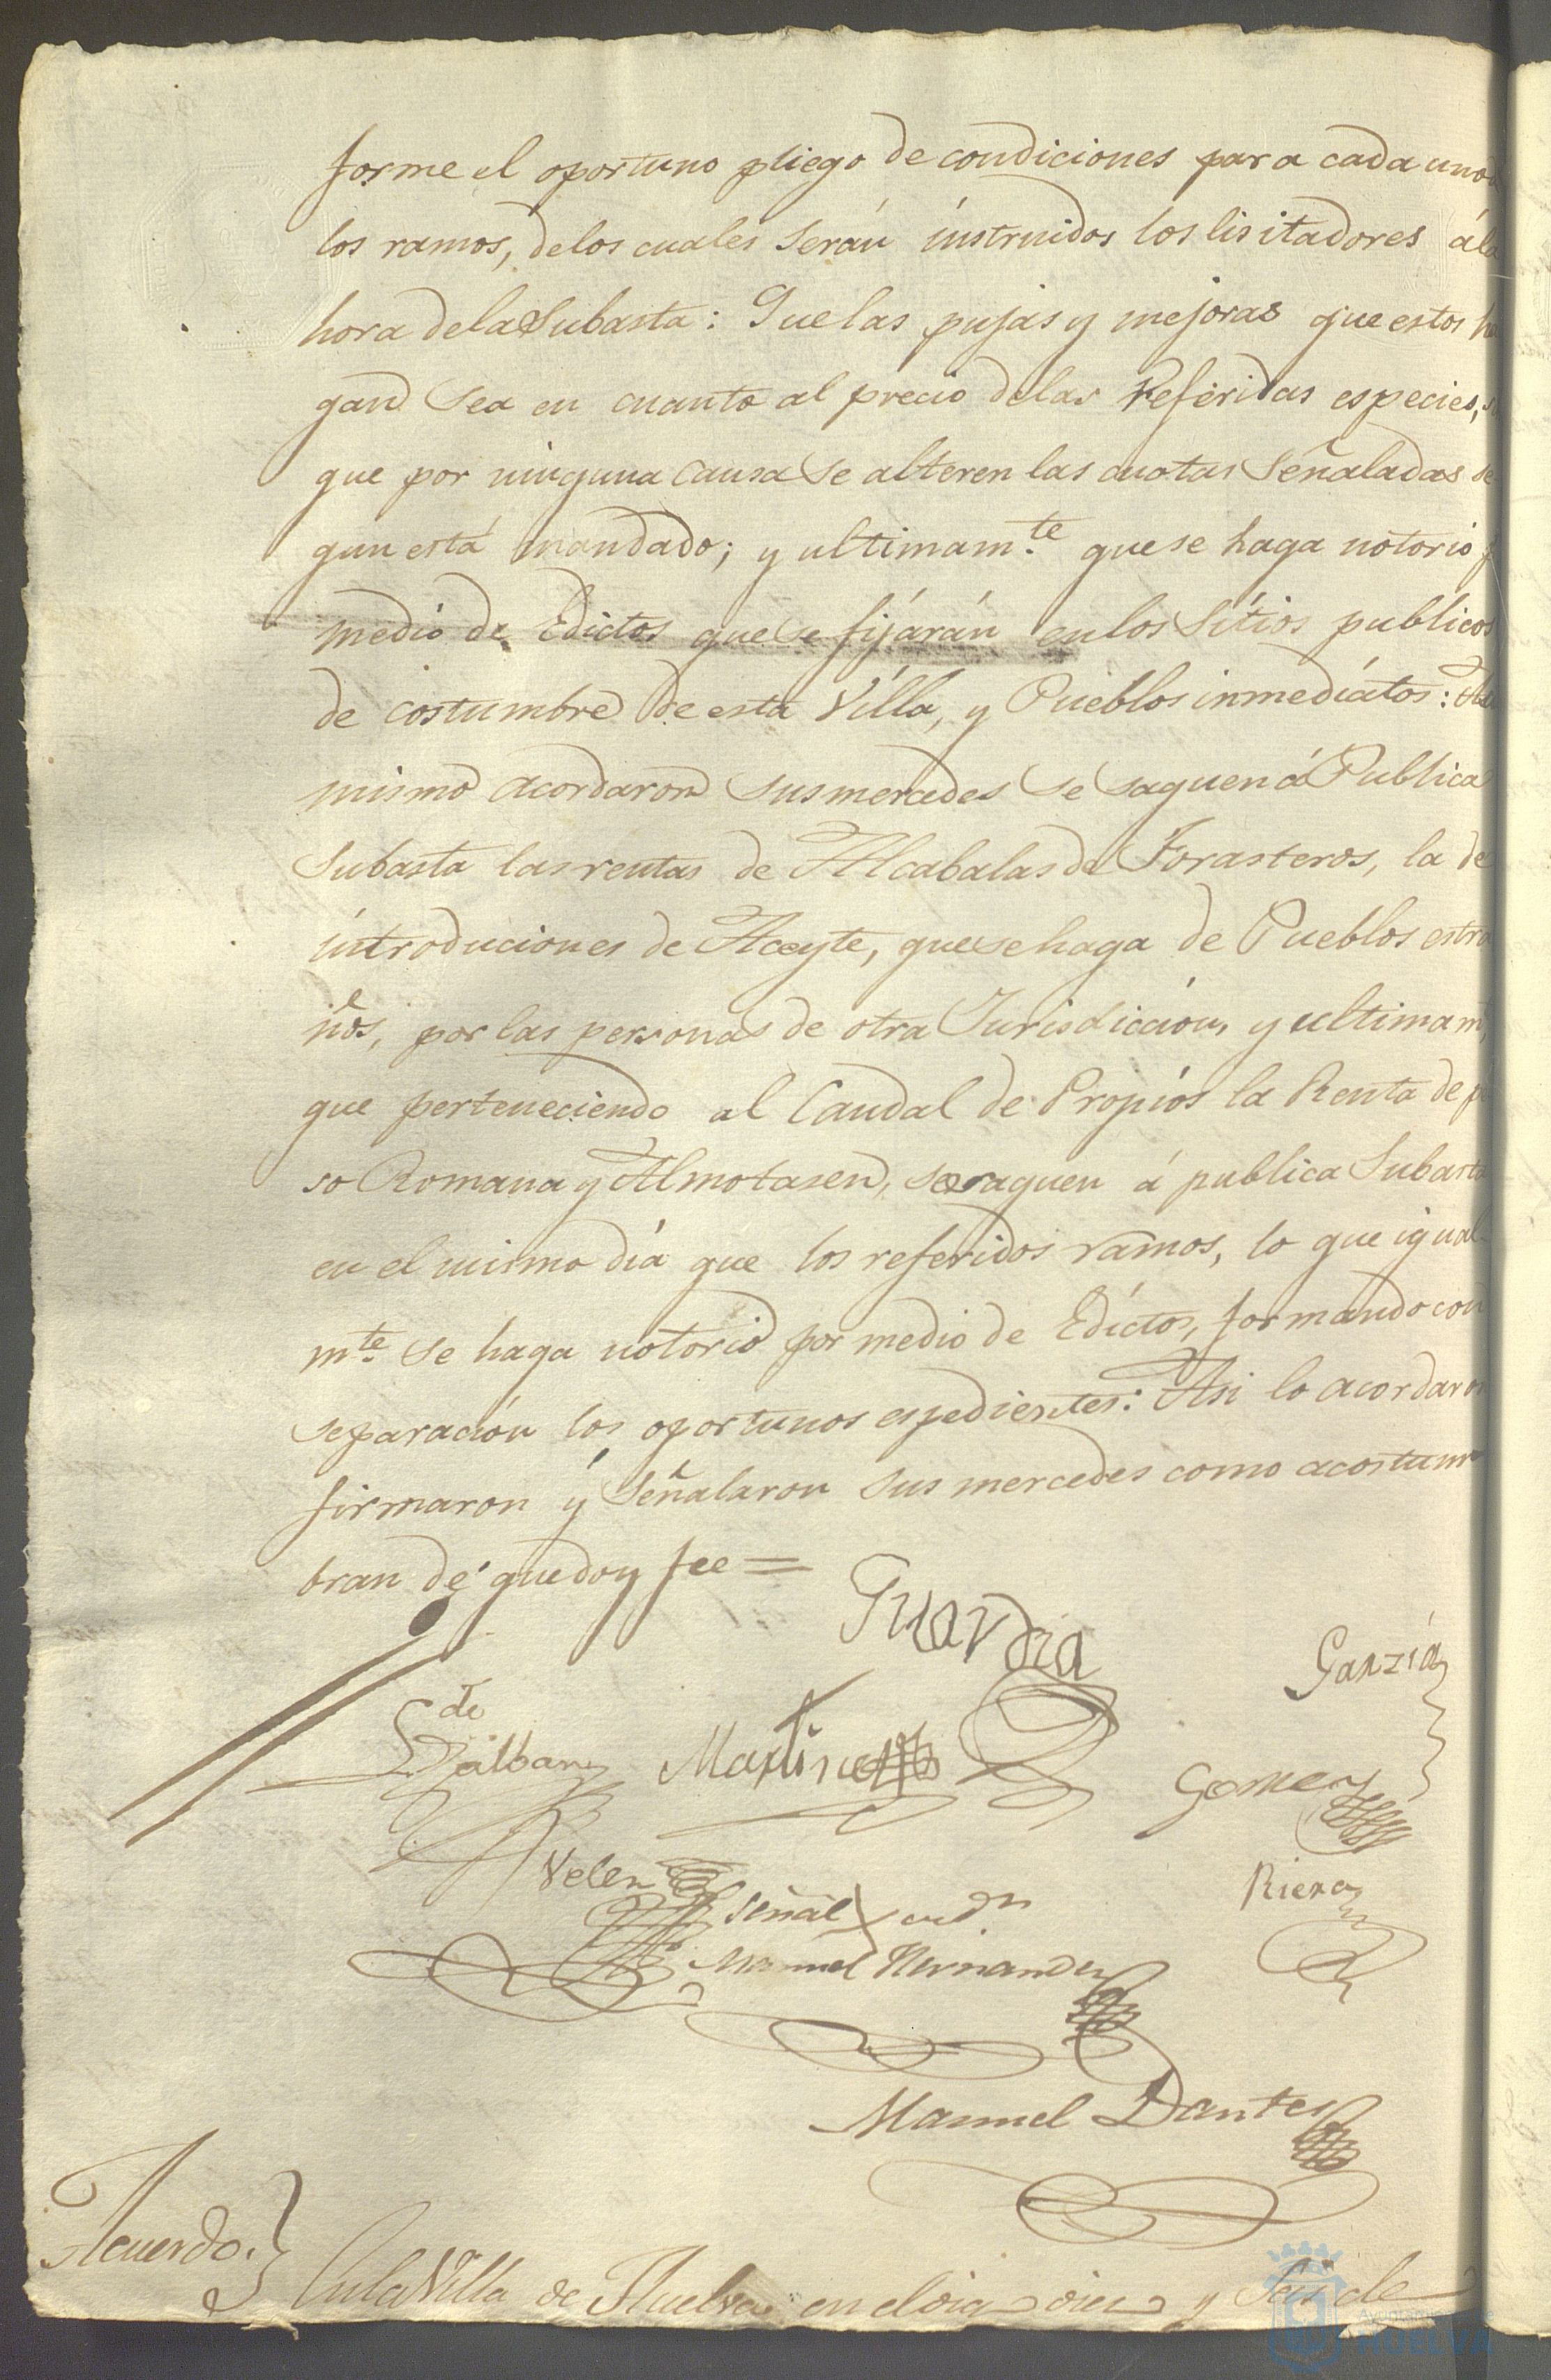 forme el oportuno pliego de condiciones para cada uno
los ramos, delos cuales serán instruidos los lisitadores á la
hora dela Subasta: Que las pujas y mejoras que estos ha
gan sea en cuanto al precio delas referidas especies, s
que por ninguna causa se alteren las cuotas señaladas se
gun está mandado; y ultimam.te que se haga notorio p
medio de Edictos que se fijarán en los sitios publicos
de costumbre de esta Villa, y Pueblos inmediatos: Asi
mismo acordaron sus mercedes se saquen á Publica
Subasta las rentas de Alcabalas de Forasteros, la de
introduciones de Aceyte, que se haga de Pueblos estra
ños, por las personas de otra Jurisdiccion, y ultimam.
que perteneciendo al Caudal de Propios la Renta de pe
so Romana y Almotasen, se saquen á publica Subasta
en el mismo dia que los referidos ramos, lo que igual
mte. se haga notorio por medio de Edictos, formando con
separacion los oportunos espedientes: Asi lo acordaron
firmaron y señalaron sus mercedes como acostum
bran de que doy fee =
Guardia
Garzia
de
Martinez
Gomez
Velez
Riera
Señal
Manuel Hernandez
Manuel Dantes
Acuerdo.
En la Villa de Huelva en el dia diez y seis de
Ayuntamiento de
HUELVA